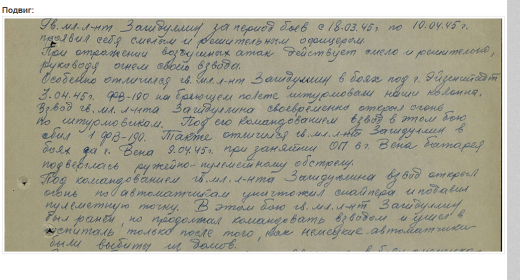 Подвиг:
Гв. мл. л-нт Загидуллин за период боев с 18.03.45г по 10.04.45г.
проявил себя смелым и решительным офицером.
При отражении воздушных атак действует смело и решительно,
руководя огнем своего взвода.
Особенно отличился гв. мл. л-нт Загидуллин в боях под г. Эйзенштадт
3.04.45г. ФВ-190 на бреющем полете штурмовали наши колонны.
Взвод гв. мл. л-нта Загидуллина своевременно открыл огонь
по штурмовикам. Под его командованием взвод в этом бою
сбил 1 ФВ-190. Также отличился гв. мл. л-нт Загидуллин в
боях за г. Вена 9.04.45г. при занятии ОП в г. Вена батарея
подверглась ружейно-пулеметному обстрелу.
Под командованием гв. мл. л-нта Загидуллина взвод открыл
огонь по автоматчикам уничтожил снайпера и подавил
пулеметную точку. В этом бою гв. мл. л-нт Загидуллин
был ранен, но продолжал командовать взводом и ушел в
госпиталь только после того, как немецкие автоматчики
были выбиты из домов.